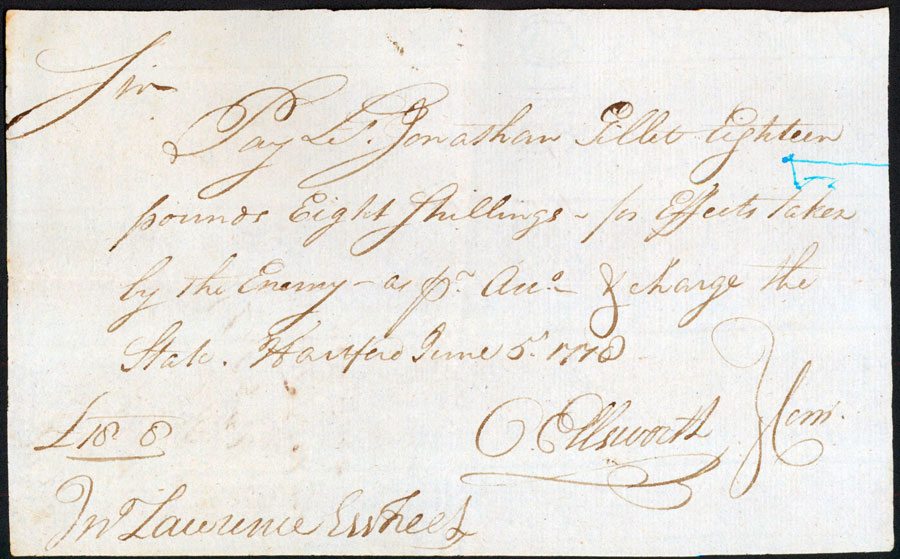 Sir
Pay Lt. Jonathan Gillet Eighteen
pounds Eight Shillings - for Effects taken
by the Enemy - as pr. Acco. - & charge the
State. Hartford June 5. 1778
£18. 8
O. Ellsworth } Com.
Jno Lawrence Esq